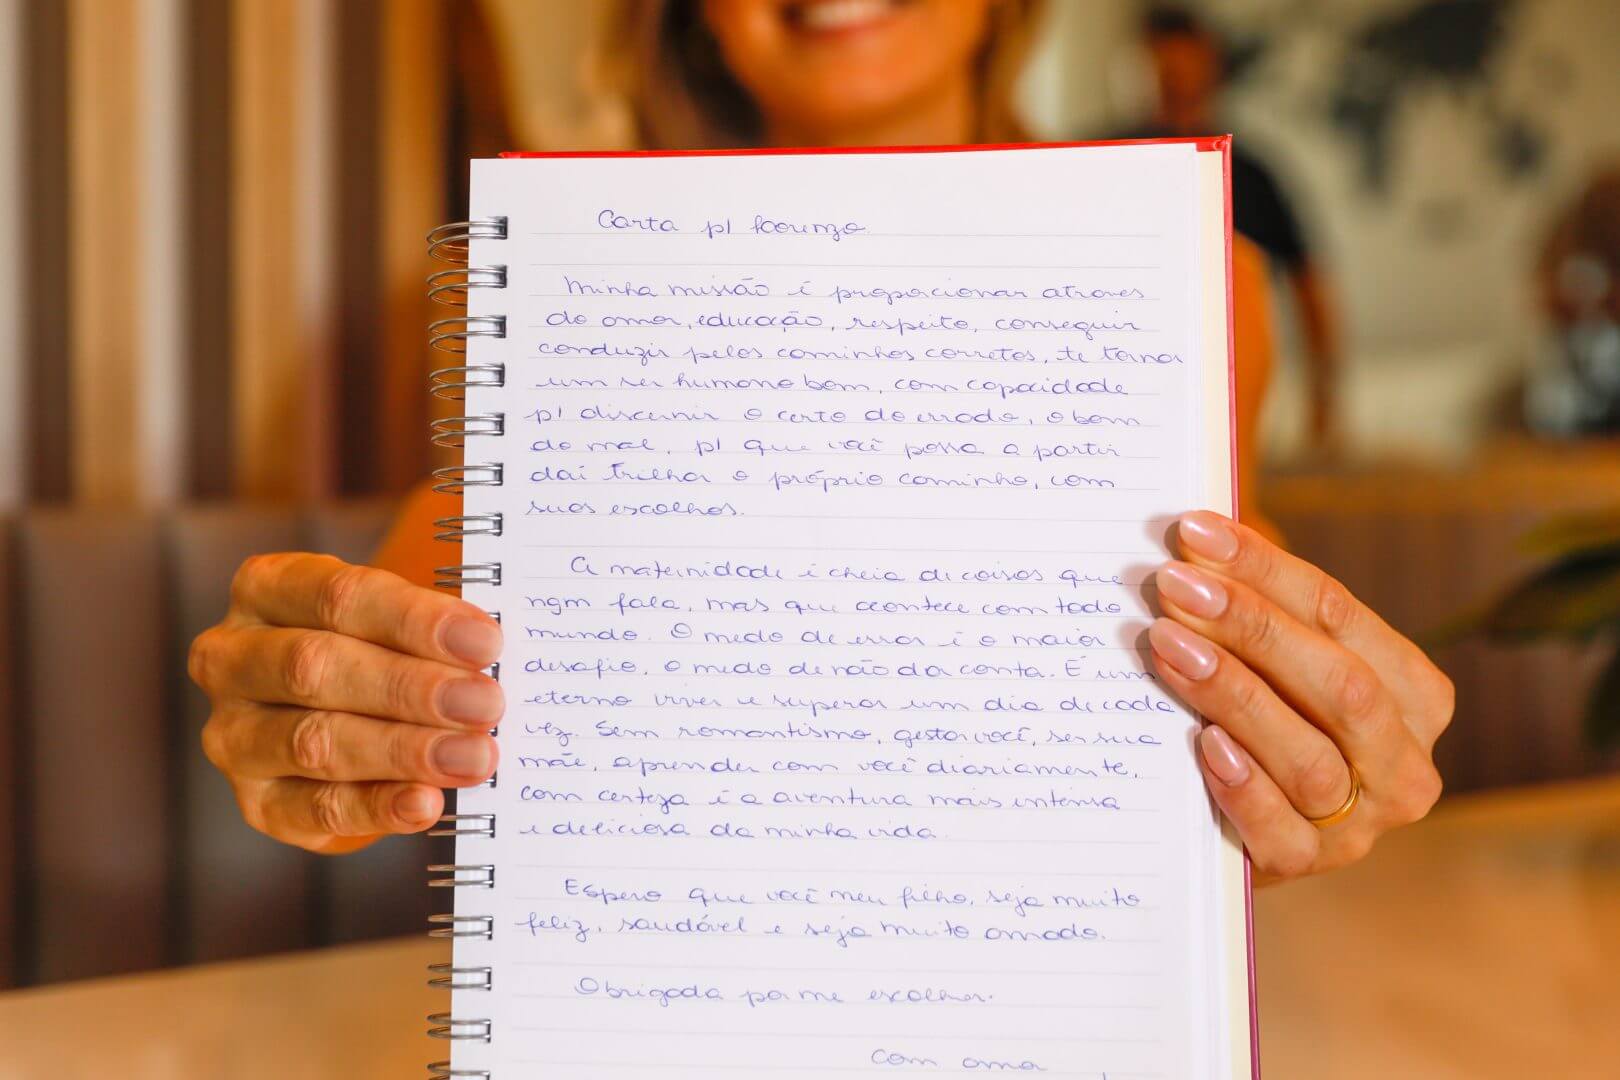 Carta p/ Lorenzo.
Minha missão é proporcionar atraves
do amor, educação, respeito, conseguir
conduzir pelos caminhos corretos, te tornar
um ser humano bom, com capacidade
p/ discernir o certo do errado, o bom
do mal, p/ que você possa a partir
daí trilhar o próprio caminho, com
suas escolhas.
A maternidade é cheia de coisas que
ngm fala, mas que acontece com todo
mundo. O medo de errar é o maior
desafio, o medo de não da conta. É um
eterno viver e superar um dia de cada
vez. Sem romantismo, gestar você, ser sua
mãe, aprender com você diariamente,
com certeza é a aventura mais intensa
e deliciosa da minha vida.
Espero que você meu filho, seja muito
feliz, saudável e seja muito amado.
Obrigada por me escolher.
Com amor